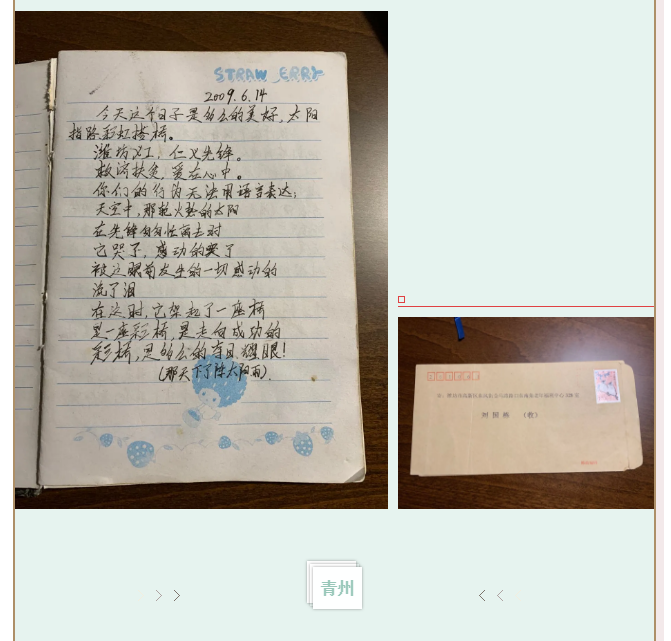 STRAW ERRY
2009.6.14
今天这个日子是多么的美好,太阳
指路彩虹搭桥。
潍坊义工,仁义先锋。
救济扶危,爱在心中。
你们的行为无法用语言表达;
天空中,那轮火盤的太阳
在先锋
它哭了,感动的哭了
被这眼前发生的一切感动的
流了泪
在这时,它架起了一座桥
是一座彩桥,是走向成功的
彩桥,是多么的夺目耀眼!
(那天下了阵太阳雨).
刘国 (收)
青州